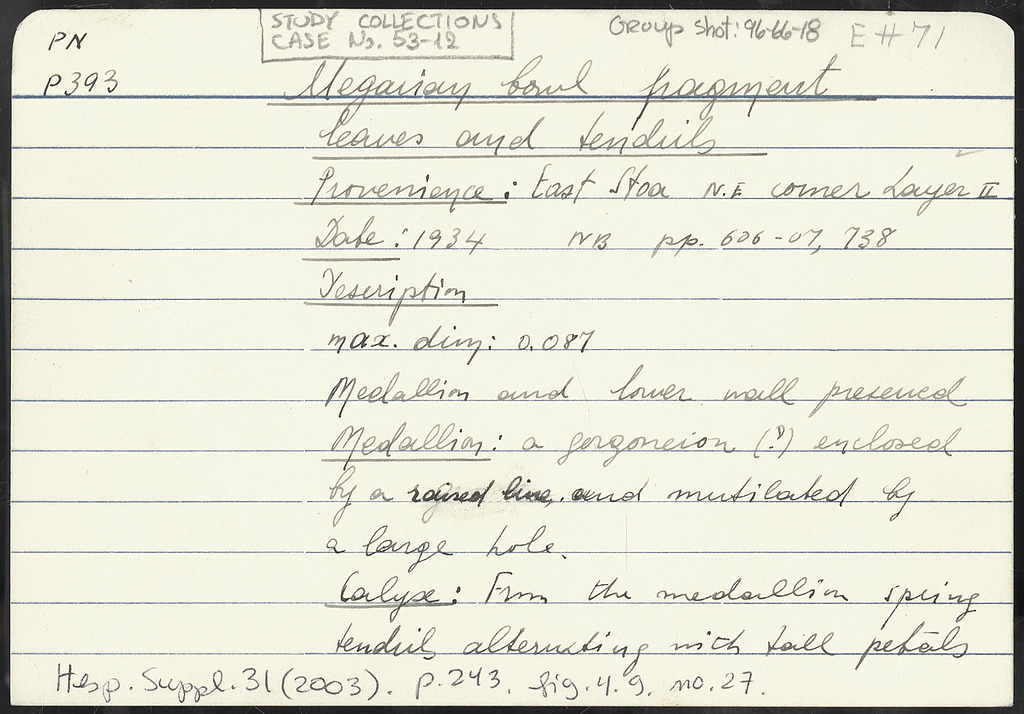 PN
STUDY COLLECTIONS
CASE No. 53-12
Group Shot: 96-66-18
E#71
P393
Megarian bowl fragment
leaves and tendrils
Provenience: East Stoa N.E corner Layer II
Date: 1934 NB pp. 606-07, 738
Description
max. dim: 0.087
Medallion and lower wall preserved
Medallion: a gorgoneion (?) enclosed
by a raised line, and mutilated by
a large hole.
Calyx: From the medallion spring
tendrils alternating with tall petals
Hesp. Suppl. 31 (2003). p.243, fig.4.9, no.27.